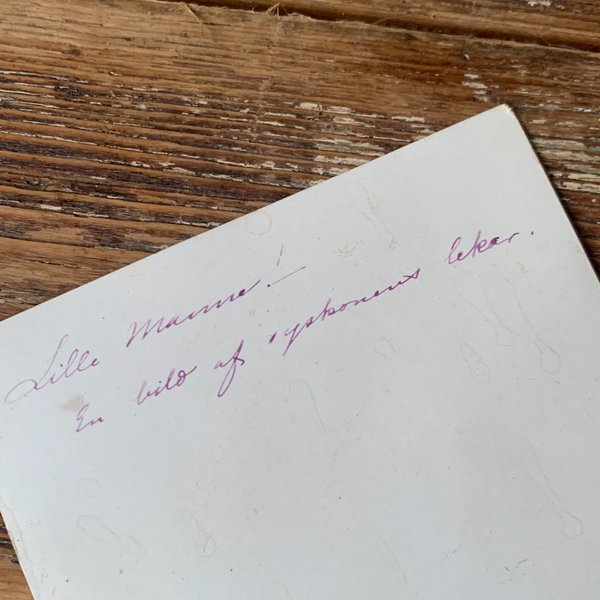 Lille Manne!
En bild af syskonens lekar.